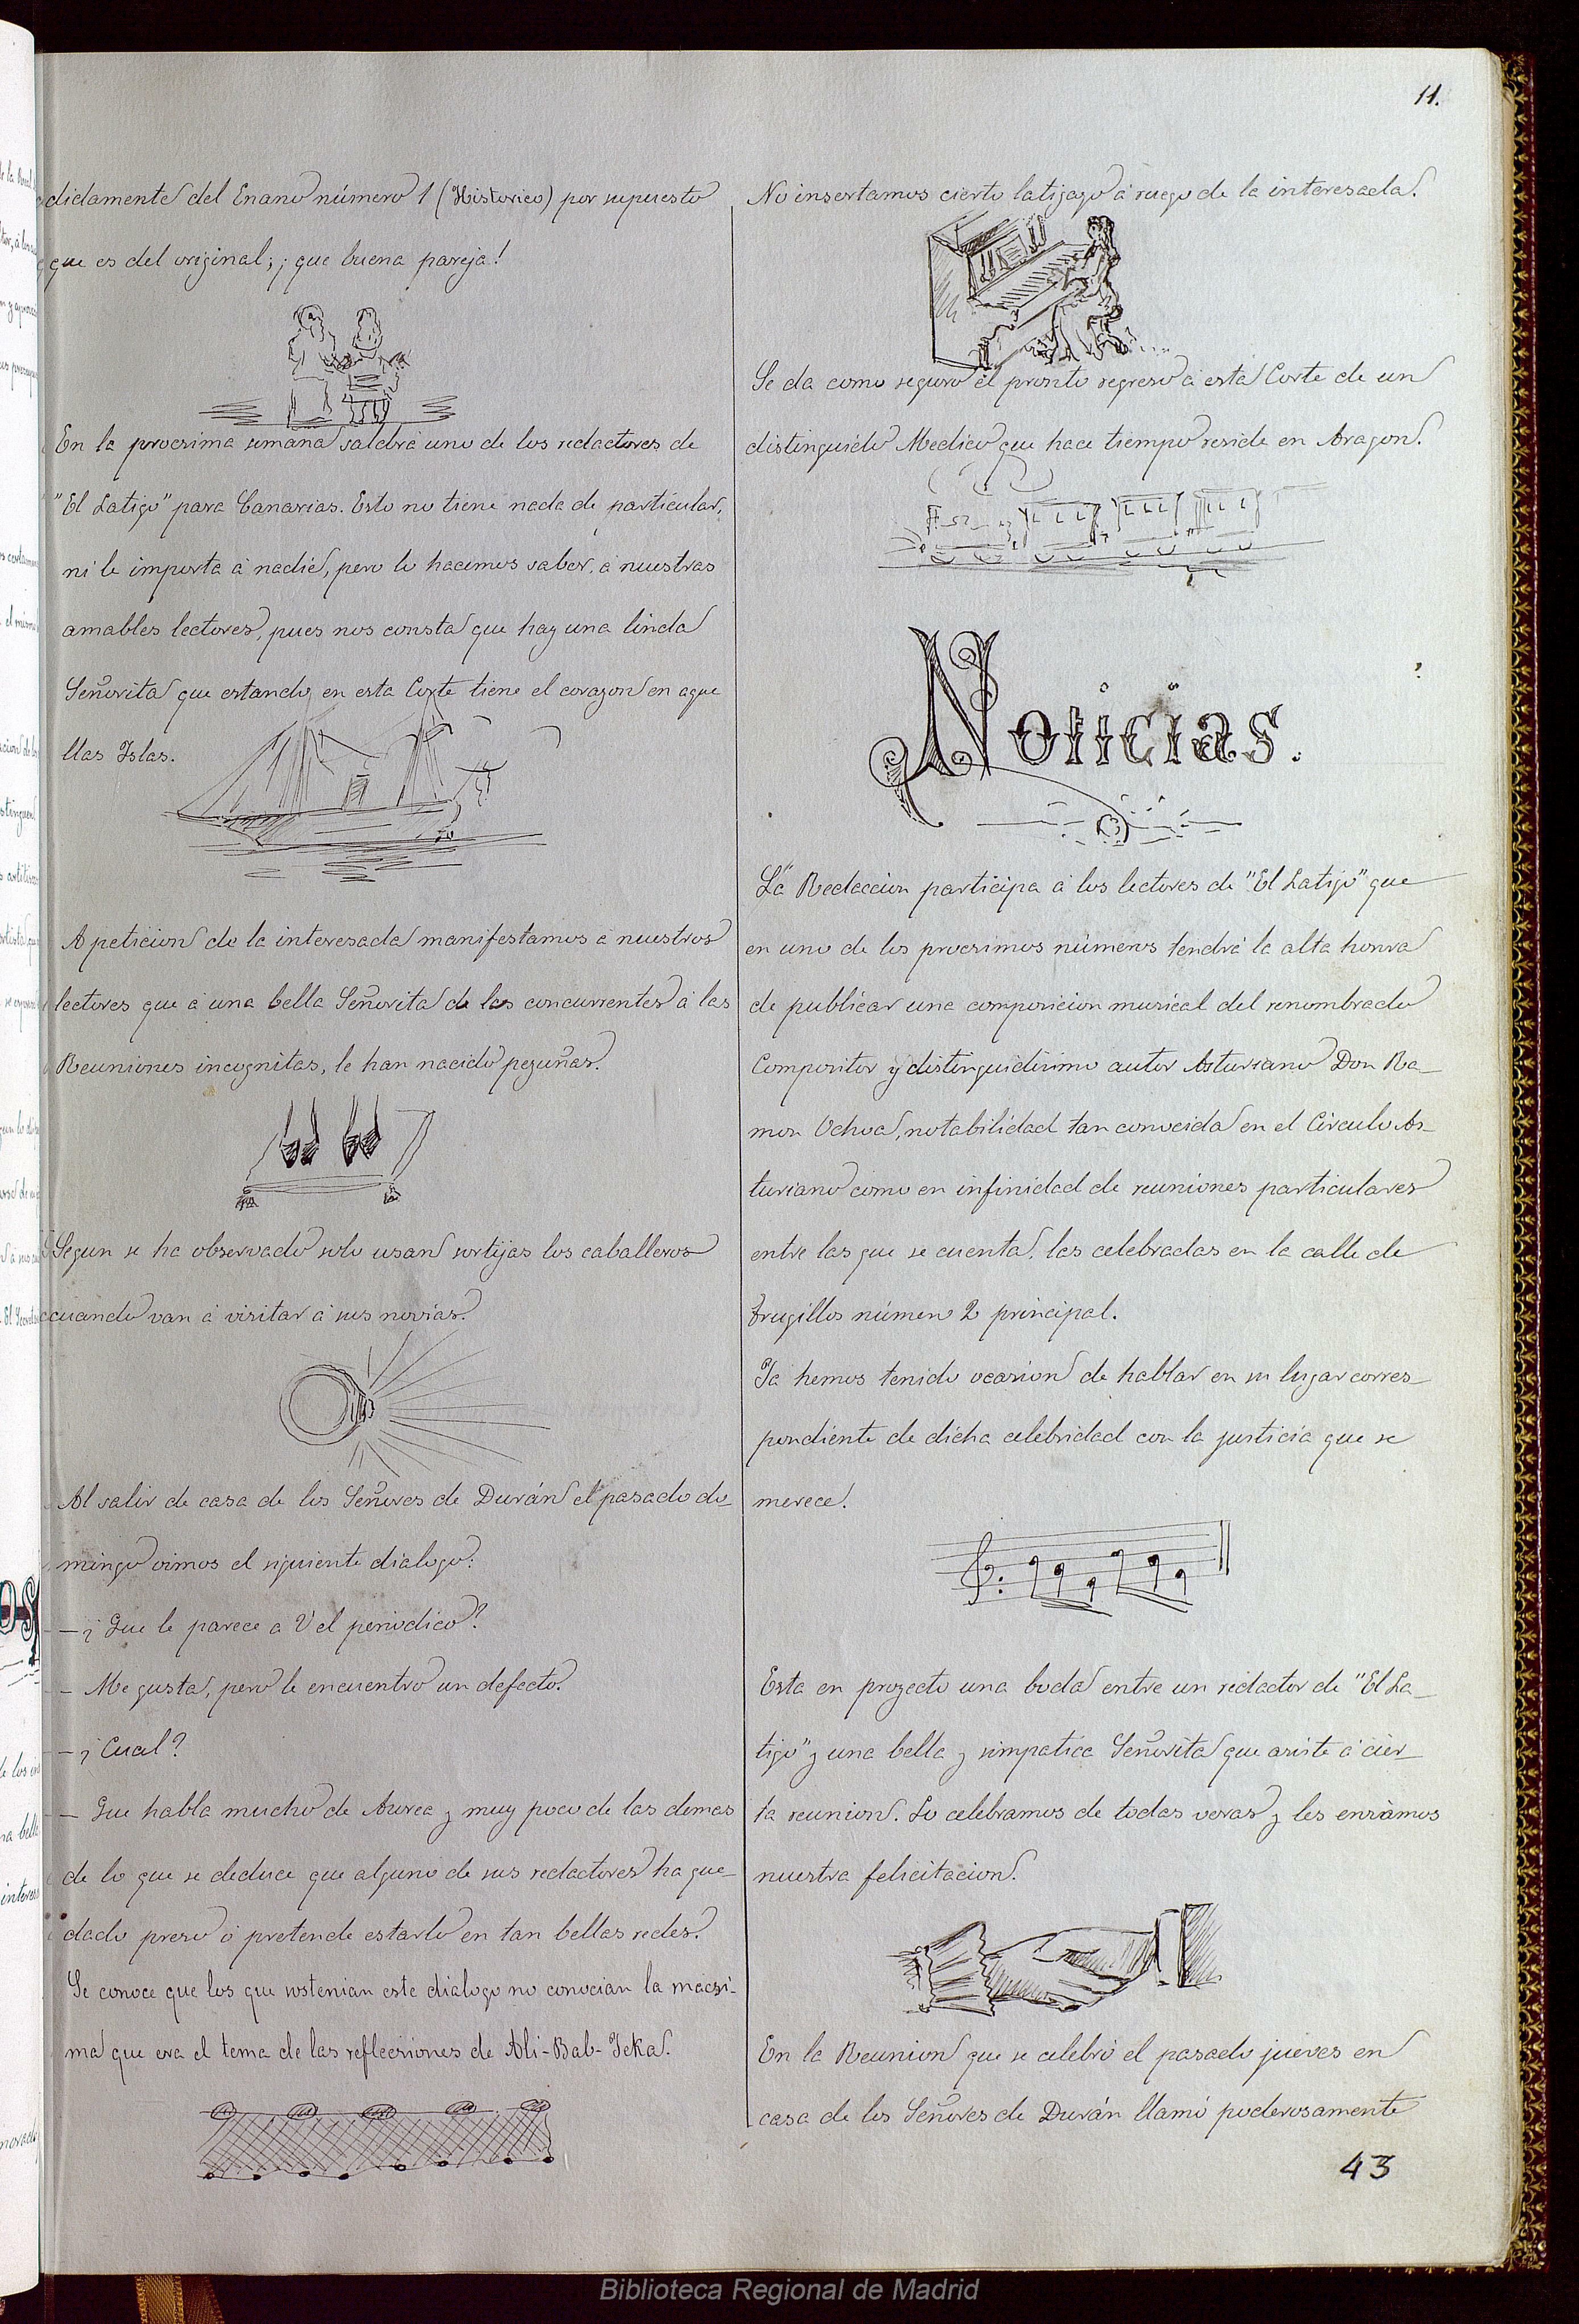 11.
didamente del Enano número 1 (Historico) por supuesto
que es del original; ¡que buena pareja!
En la procsima semana saldrá uno de los redactores de
"El Latigo" para Canarias. Esto no tiene nada de particular,
ni le importa á nadie, pero lo hacemos saber, á nuestras
amables lectores, pues nos consta que hay una linda
Señorita que estando en esta Corte tiene el corazon en aque
llas Islas.
A peticion de la interesada manifestamos á nuestros
lectores que á una bella Señorita de las concurrentes á las
Reuniones incognitas, le han nacido pezuñas.
Segun se ha observado solo usan sortijas los caballeros
cuando van á visitar á sus novias.
Al salir de casa de los Señores de Durán el pasado do_
mingo oimos el siguiente dialogo:
—¿Que le parece a V el periodico?
— Me gusta, pero le encuentro un defecto.
—¿Cual?
— Que habla mucho de Aurea y muy poco de las demas
de lo que se deduce que alguno de sus redactores ha que_
dado preso ó pretende estarlo en tan bellas redes.
Se conoce que los que sostenian este dialogo no conocian la macsi-
ma que era el tema de las reflecsiones de Ali-Bab-Jeka.
No insertamos cierto latigazo á ruego de la interesada.
Se da como seguro el pronto regreso á esta Corte de un
distinguido Medico que hace tiempo reside en Aragon.
Noticias.
La Redaccion participa á los lectores de "El Latigo" que
en uno de los procsimos números tendrá la alta honra
de publicar una composicion musical del renombrado
Compositor y distinguidisimo autor Asturiano Don Ra_
mon Ochoa, notabilidad tan conocida en el Circulo As_
turiano como en infinidad de reuniones particulares
entre las que se cuenta, las celebradas en la calle de
Trugillos número 2 principal.
Ya hemos tenido ocasion de hablar en su lugar corres_
pondiente de dicha celebridad con la justicia que se
merece.
Esta en proyecto una boda entre un redactor de "El La_
tigo" y una bella y simpatica Señorita que asiste á cier_
ta reunion. Lo celebramos de todas veras y les enviamos
nuestra felicitacion.
En la Reunion que se celebró el pasado jueves en
casa de los Señores de Durán llamó poderosamente
43
Biblioteca Regional de Madrid